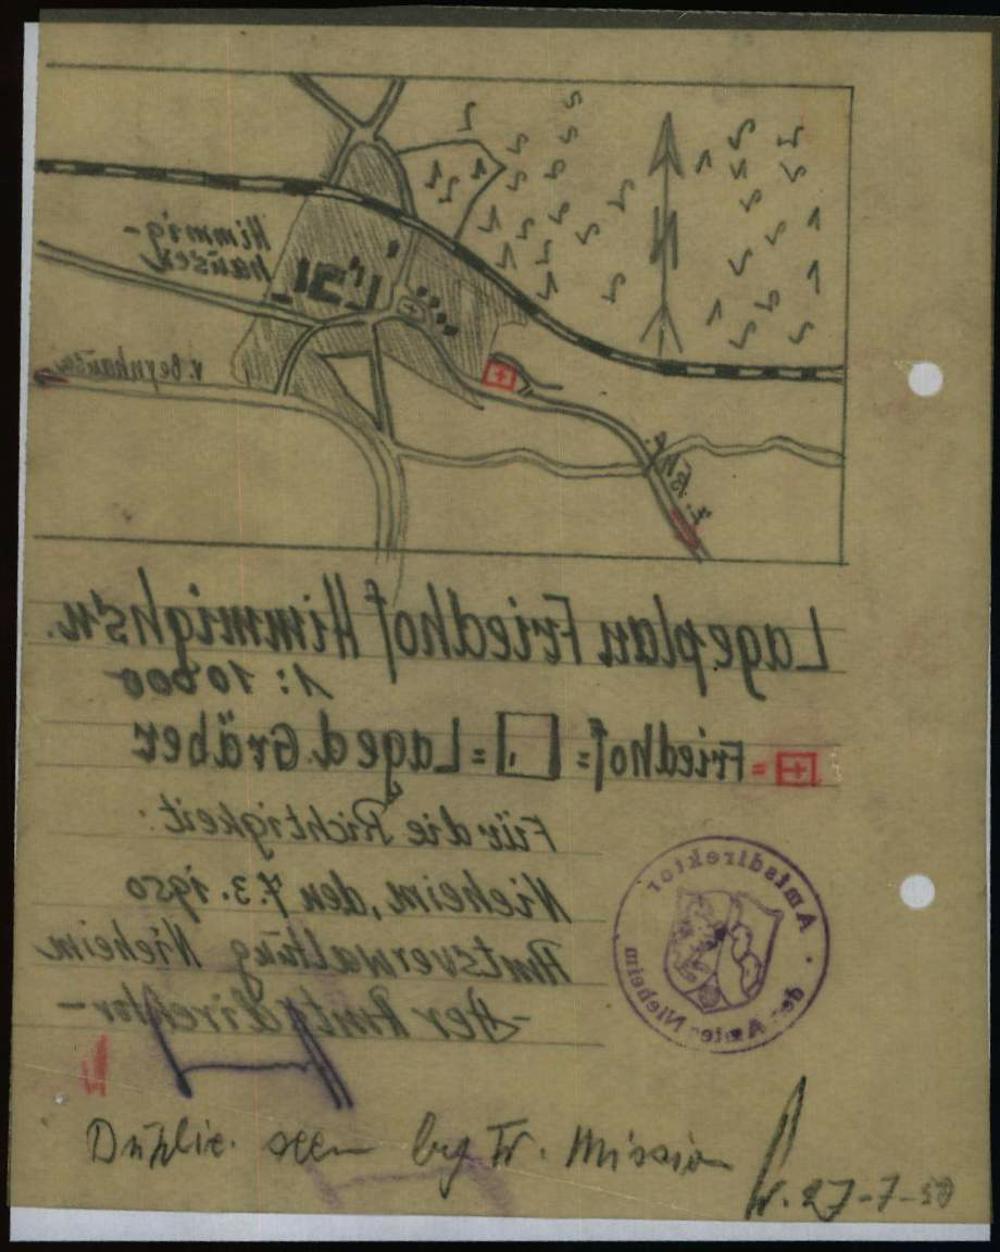 Himmig-
hausen
N
v. Bernhausen
n. Nieh.
Lageplan Friedhof Himmighs'n.
1:10000
= Friedhof = Lage d. Gräber
Für die Richtigkeit:
Nieheim, den 7.3.1950
Amtsverwaltung Nieheim
-Der Amtsdirektor-
Amtsdirektor
des Amtes Nieheim
Duplic. seen by Fr. Mission
27-7-50